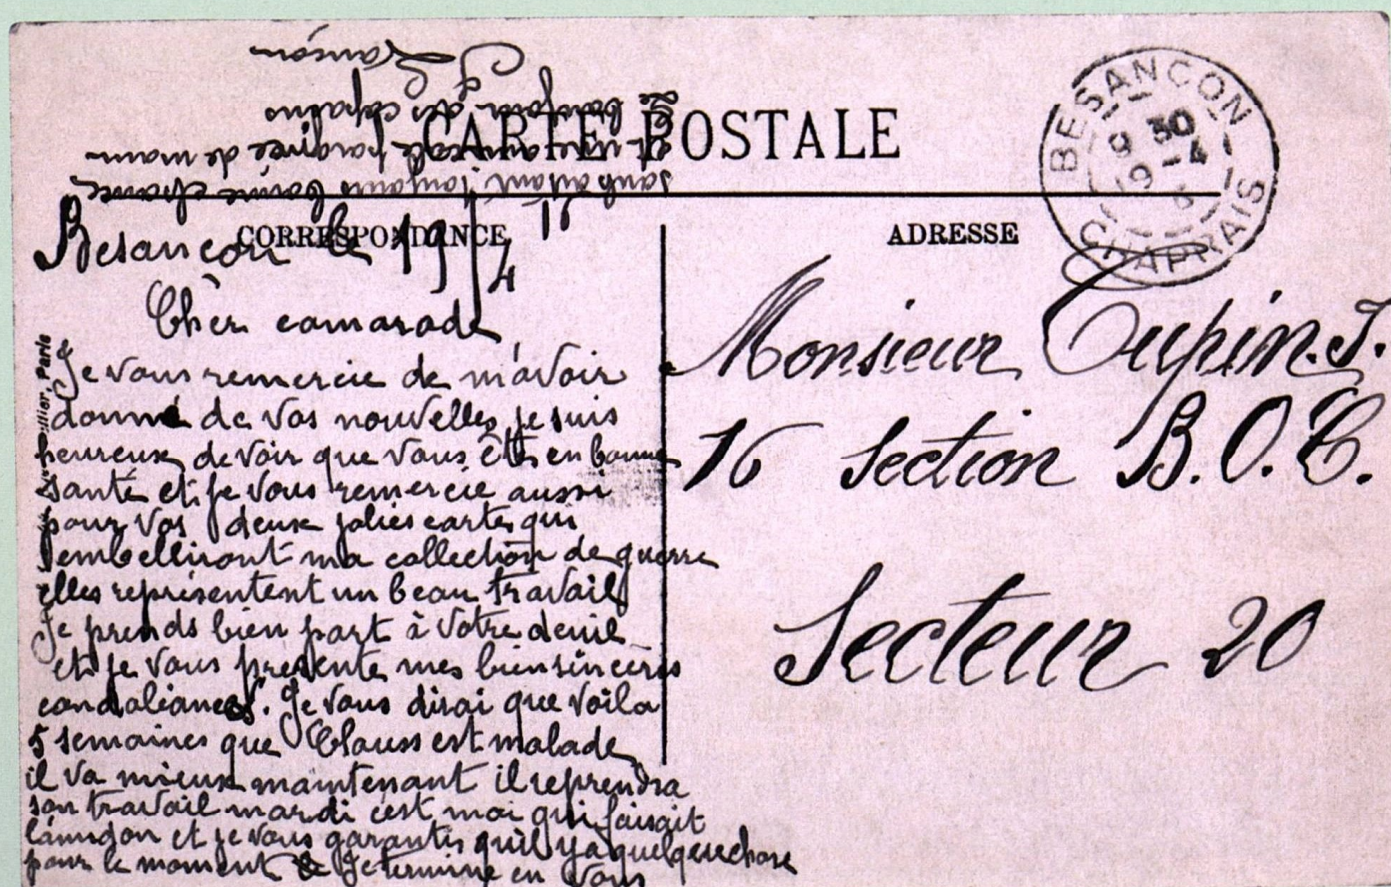 CARTE POSTALE
CORRESPONDANCE
ADRESSE
BESANCON
9 30
19 - 4
CHAPRAIS
Besancon le 19/4 16
Chèr camarade
Je vous remercie de m'avoir
donné de vos nouvelles je suis
heureux de voir que vous êtes en bonne
santé et je vous remercie aussi
pour vos deux jolies cartes qui
embelliront ma collection de guerre
elles représentent un beau travail
Je prends bien part à votre deuil
et je vous présente mes bien sincères
condoléances. Je vous dirai que voila
5 semaines que Clauss est malade
il va mieux maintenant il reprendra
son travail mardi c'est moi qui faisait
et je vous garantis qu'il y a quelque chose
pour le moment Je termine en vous
souhaitant toujours bonne chance
et une amicale poignée de main
Le bonjour des copains
Monsieur Tupin. J.
16 Section B.O.C.
Secteur 20